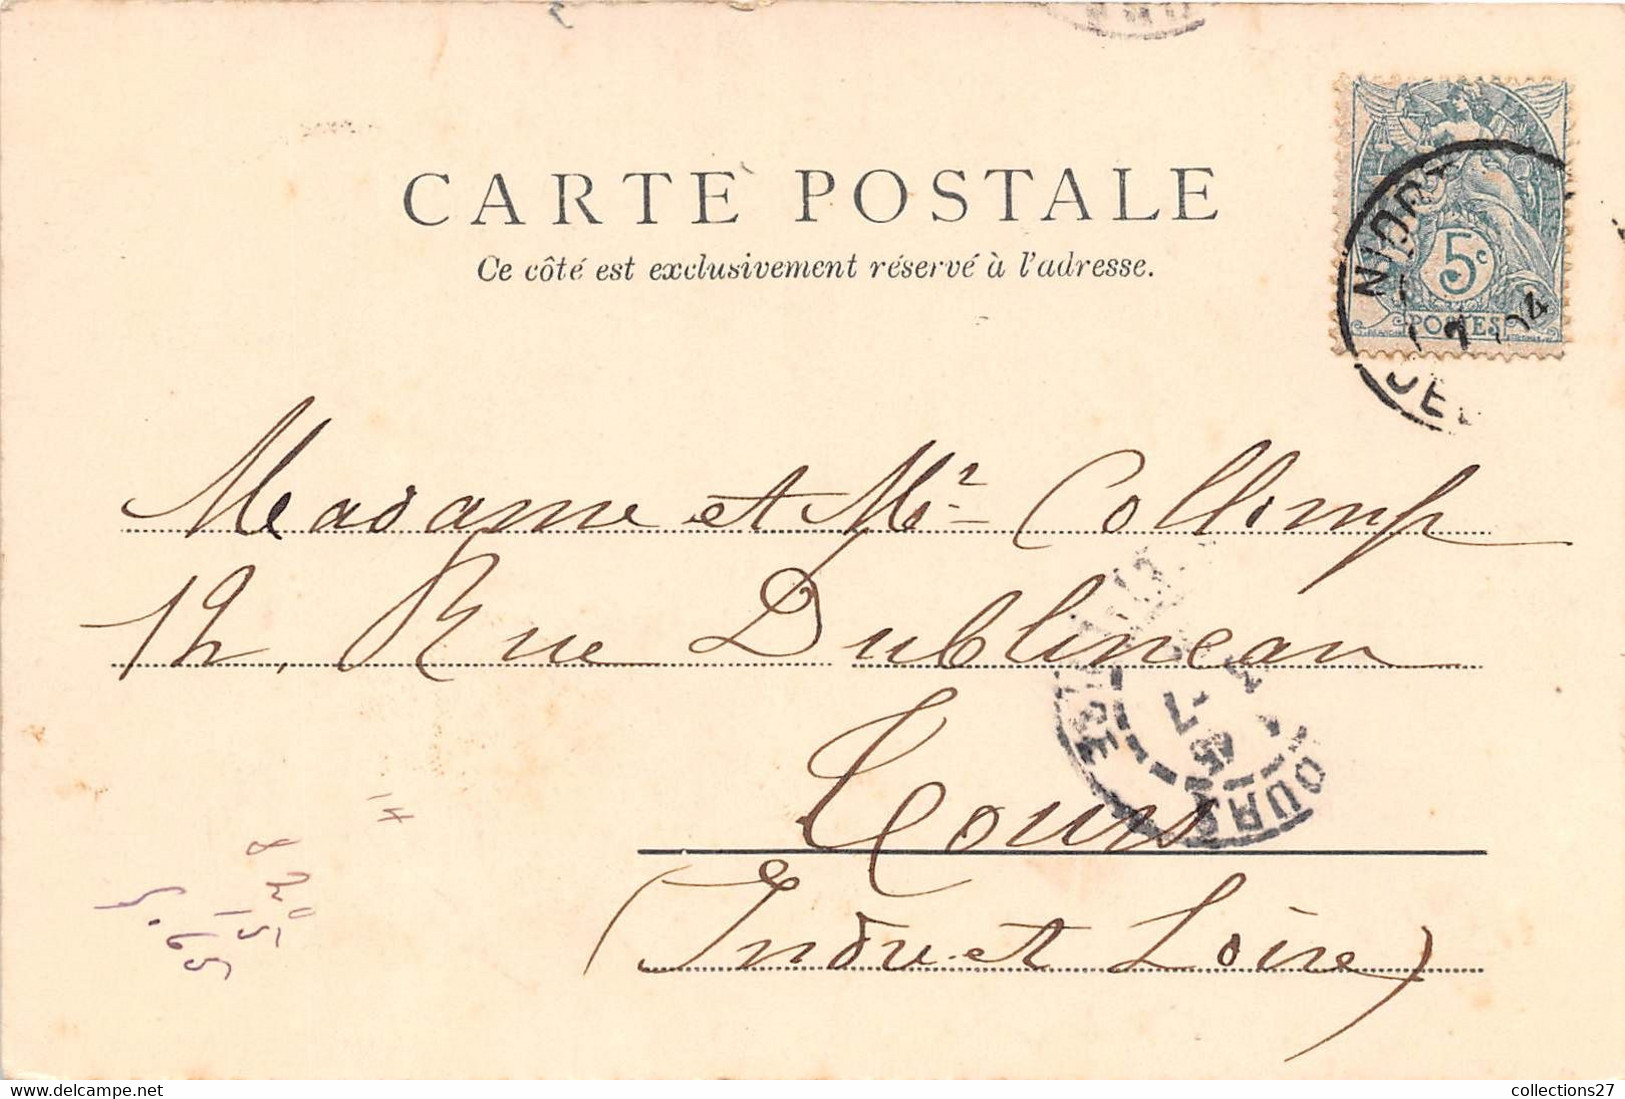 CARTE POSTALE
Ce côté est exclusivement réservé à l'adresse.
5c
POSTES
NIORT
7 04
Madame et Mr Collimp
12, Rue Dublineau
Tours
(Indre et Loire)
TOURS
14
15
5.65
delcampe.net
collections27